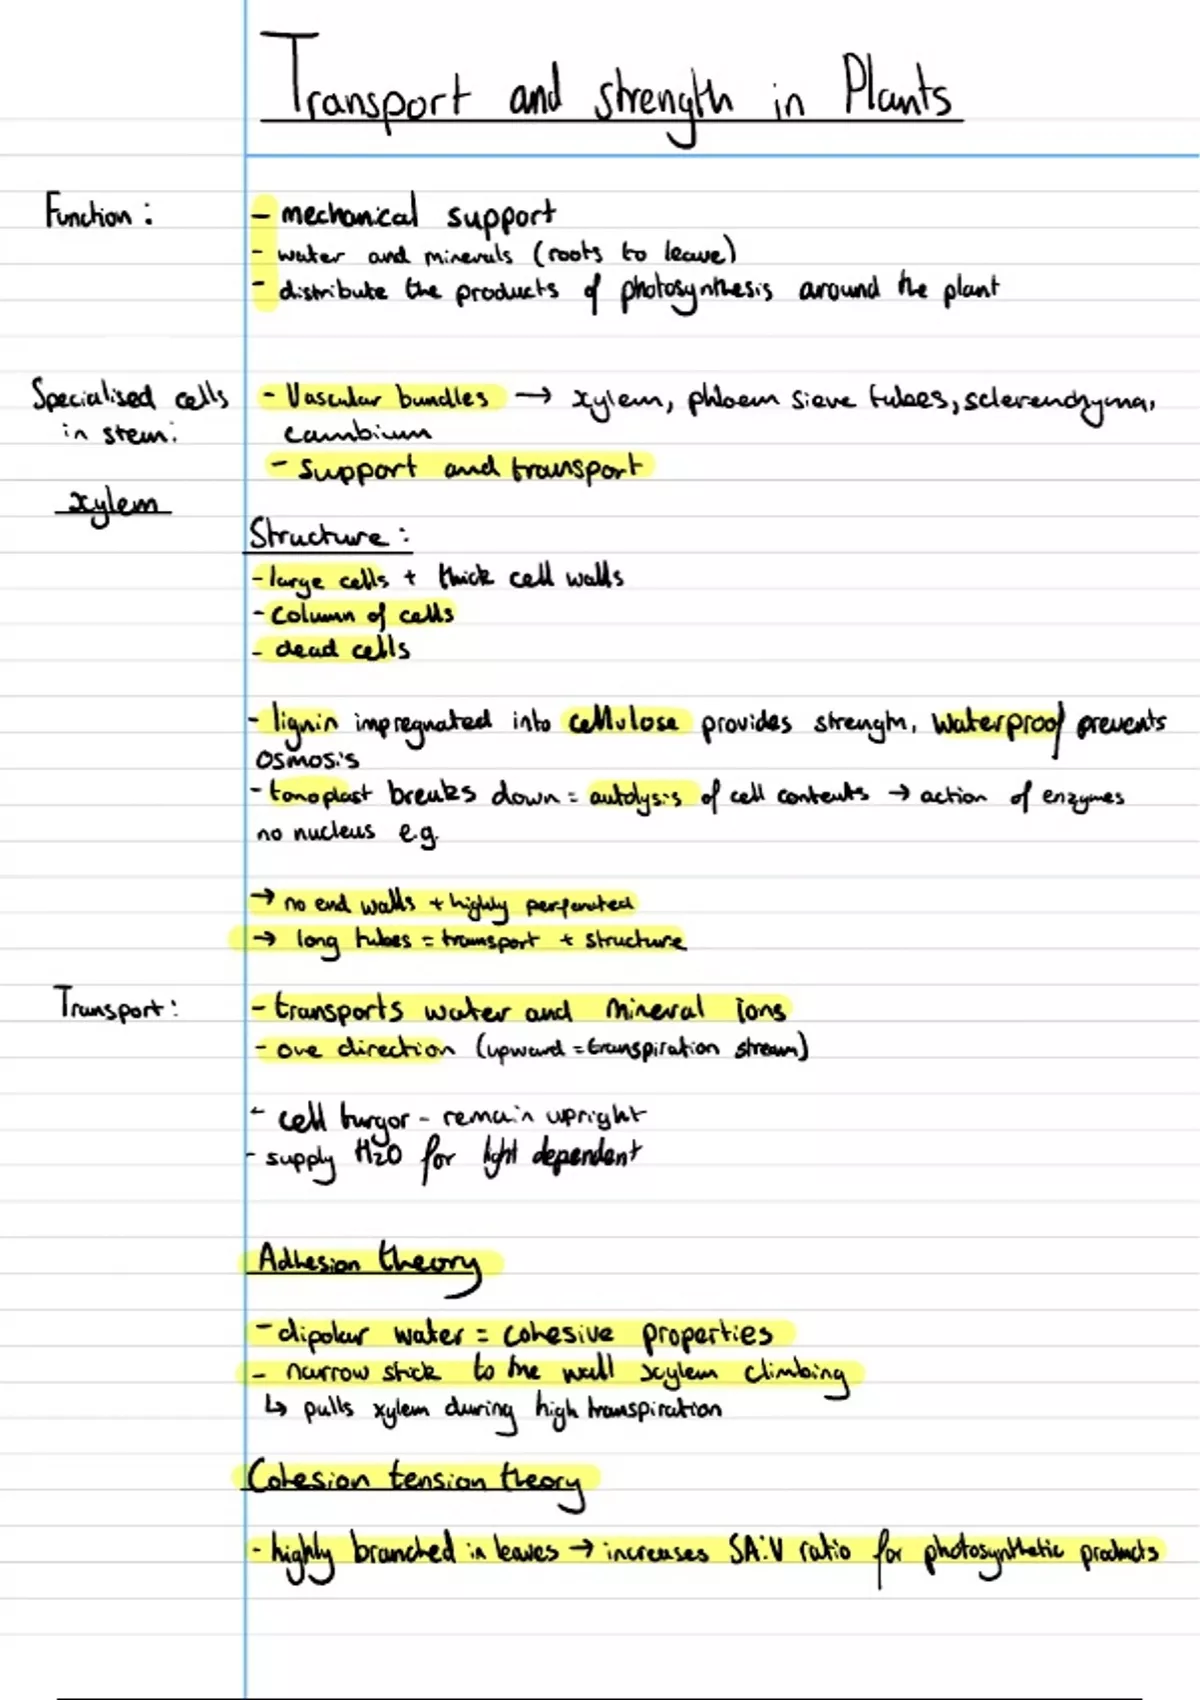 Transport and strength in Plants
Function:
- mechanical support
- water and minerals (roots to leave)
- distribute the products of photosynthesis around the plant
Specialised cells
in stem:
- Vascular bundles → xylem, phloem sieve tubes, sclerenchyma,
cambium
- support and transport
xylem
Structure:
- large cells + thick cell walls
- Column of cells
- dead cells
- lignin impregnated into cellulose provides strength, waterproof prevents
osmosis
- tonoplast breaks down = autolysis of cell contents → action of enzymes
no nucleus e.g.
→ no end walls + highly perforated
→ long tubes = transport + structure
Transport:
- transports water and mineral ions
- one direction (upward = transpiration stream)
- cell turgor - remain upright
- supply H2O for light dependent
Adhesion theory
- dipolar water = cohesive properties
- narrow stick to the wall xylem climbing
↳ pulls xylem during high transpiration
Cohesion tension theory
- highly branched in leaves → increases SA:V ratio for photosynthetic products